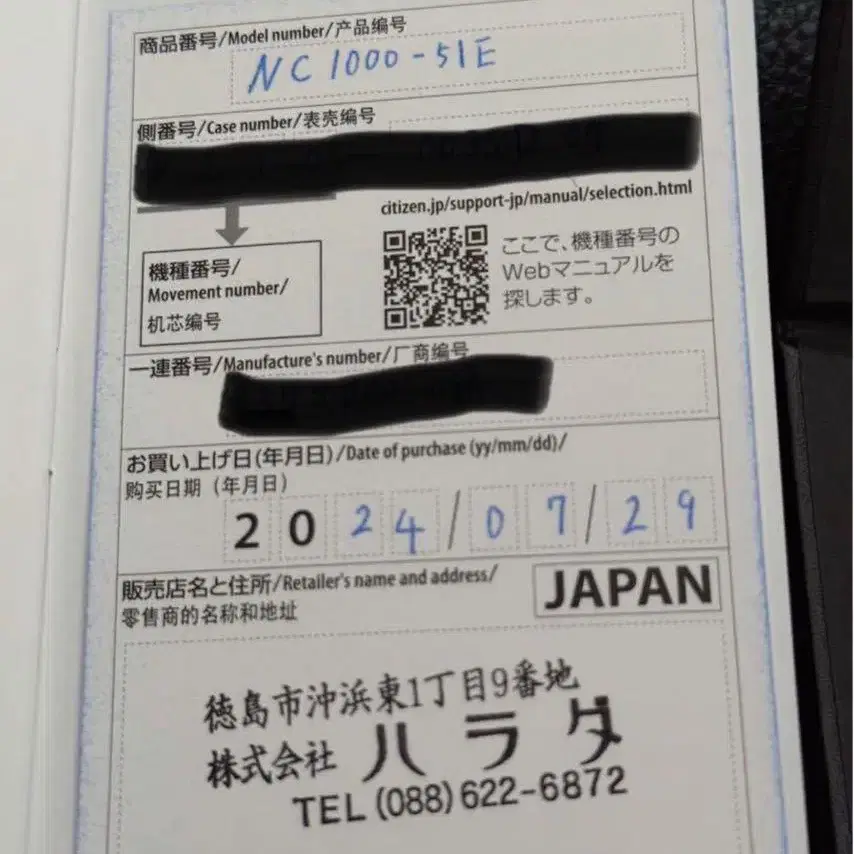 商品番号/Model number/产品编号
NC1000-51E
側番号/Case number/表壳编号
citizen.jp/support-jp/manual/selection.html
機種番号/
Movement number/
机芯编号
ここで、機種番号の
Webマニュアルを
探します。
一連番号/Manufacture's number/厂商编号
お買い上げ日(年月日)/Date of purchase (yy/mm/dd)/
购买日期（年月日）
2024/07/29
販売店名と住所/Retailer's name and address/
零售商的名称和地址
JAPAN
徳島市沖浜東1丁目9番地
株式会社 ハラダ
TEL (088) 622-6872